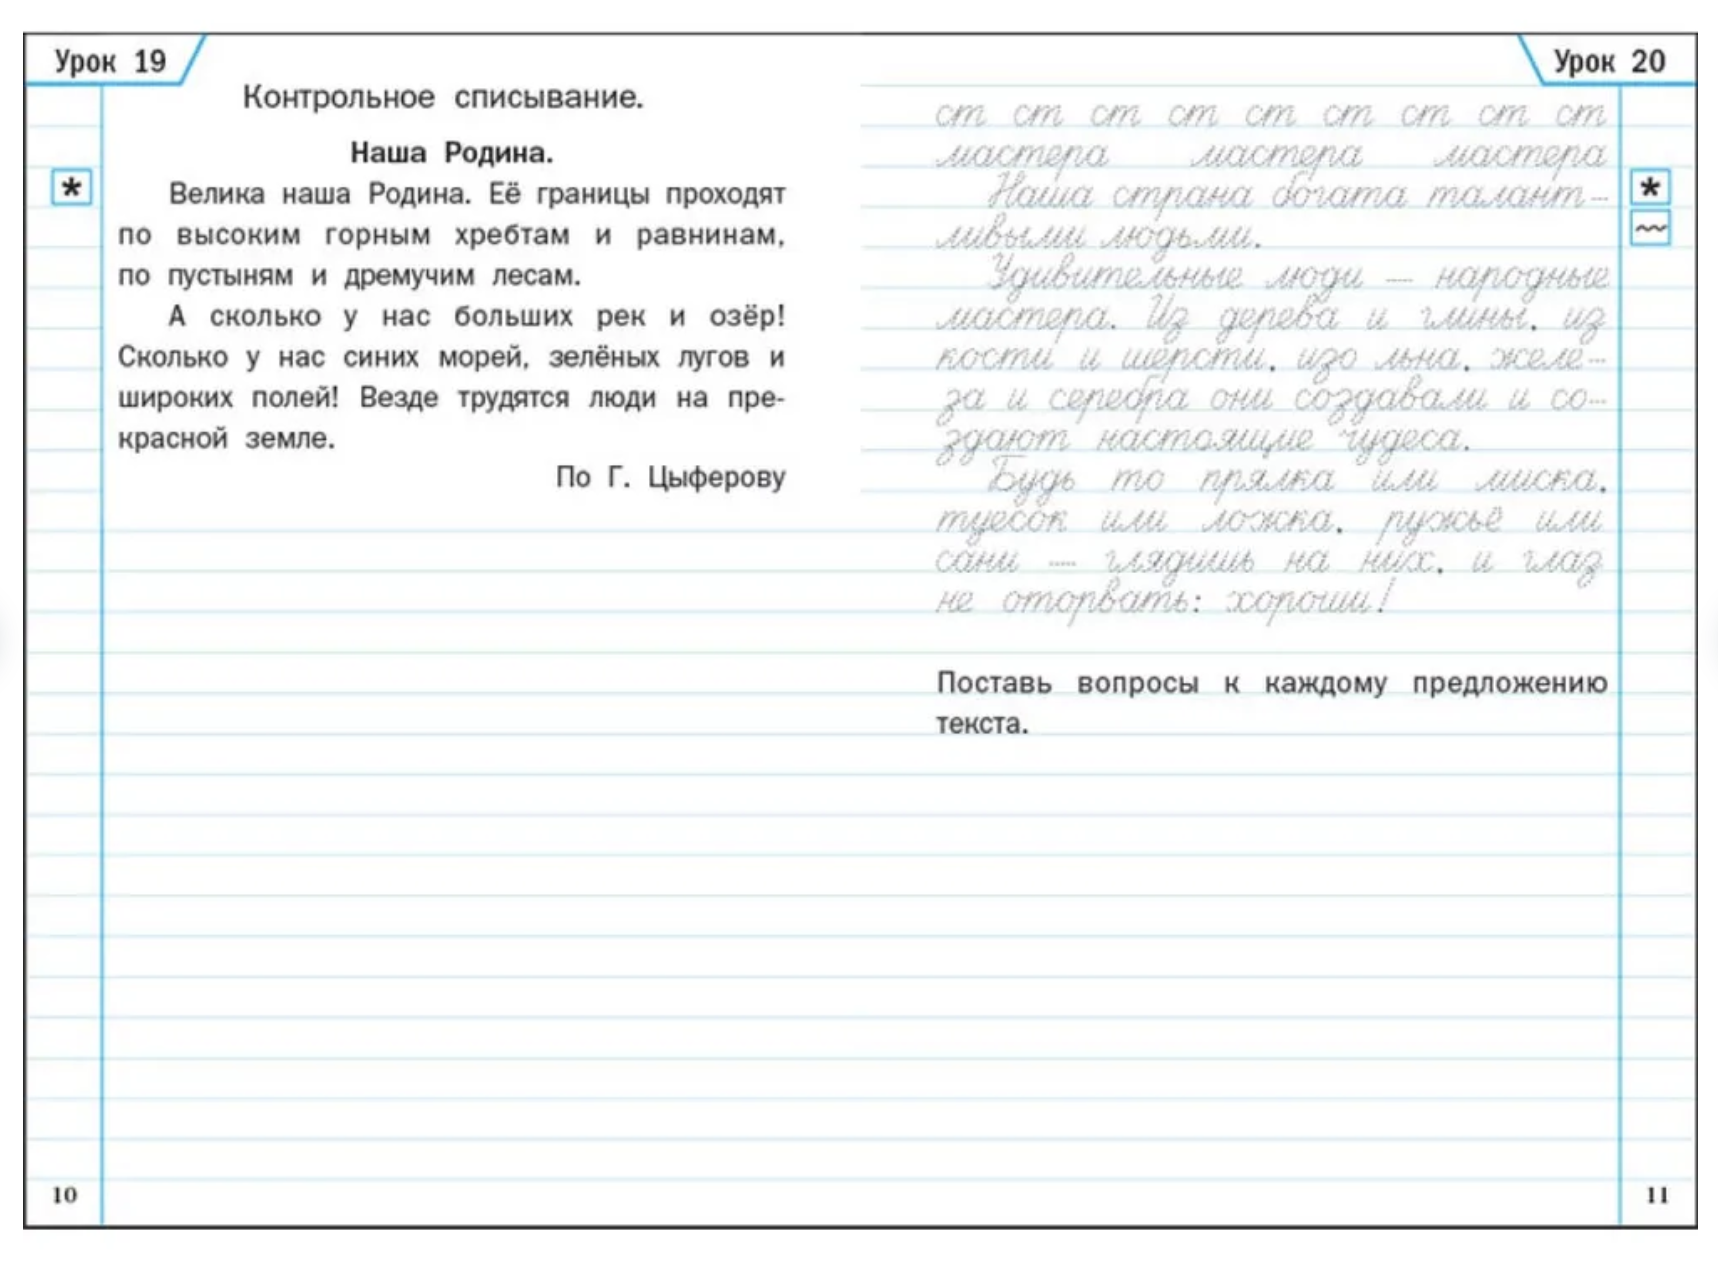 Урок 19
Контрольное списывание.
Наша Родина.
*
Велика наша Родина. Её границы проходят
по высоким горным хребтам и равнинам,
по пустыням и дремучим лесам.
А сколько у нас больших рек и озёр!
Сколько у нас синих морей, зелёных лугов и
широких полей! Везде трудятся люди на пре-
красной земле.
По Г. Цыферову
10
Урок 20
ст ст ст ст ст ст ст ст ст
мастера мастера мастера
*
Наша страна богата талант-
ливыми людьми.
Удивительные люди — народные
мастера. Из дерева и глины, из
кости и шерсти, изо льна, желе-
за и серебра они создавали и со-
здают настоящие чудеса.
Будь то прялка или миска,
туесок или ложка, ружьё или
сани — глядишь на них, и глаз
не оторвать: хороши!
Поставь вопросы к каждому предложению
текста.
11